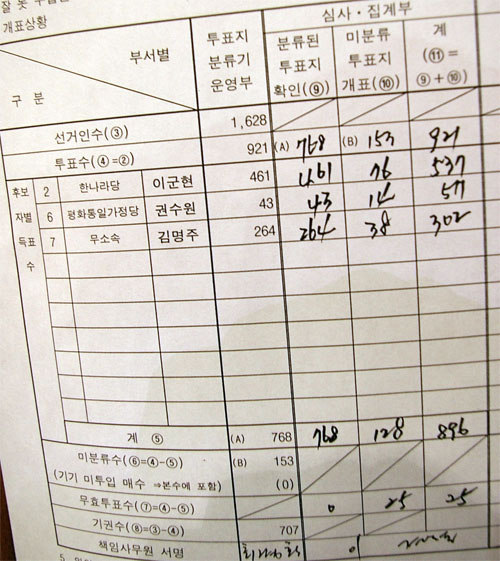 개표상황
구 분 부서별 투표지 분류기 운영부 심사·집계부
분류된 투표지 확인(⑨) 미분류 투표지 개표(⑩) 계 (⑪= ⑨+⑩)
선거인수(③) 1,628
투표수(④=②) 921 (A) 768 (B) 153 921
후보자별 득표수
2 한나라당 이군현 461 461 76 537
6 평화통일가정당 권수원 43 43 14 57
7 무소속 김명주 264 264 38 302
계 ⑤ (A) 768 768 128 896
미분류수(⑥=④-⑤) (B) 153
(기기 미투입 매수 ⇒본수에 포함) (0)
무효투표수(⑦=④-⑤) 0 25 25
기권수(⑧=③-④) 707
책임사무원 서명